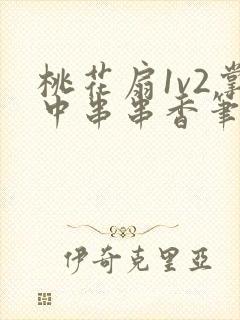 桃花扇1v2掌
中串串香筆
伊奇克里亞